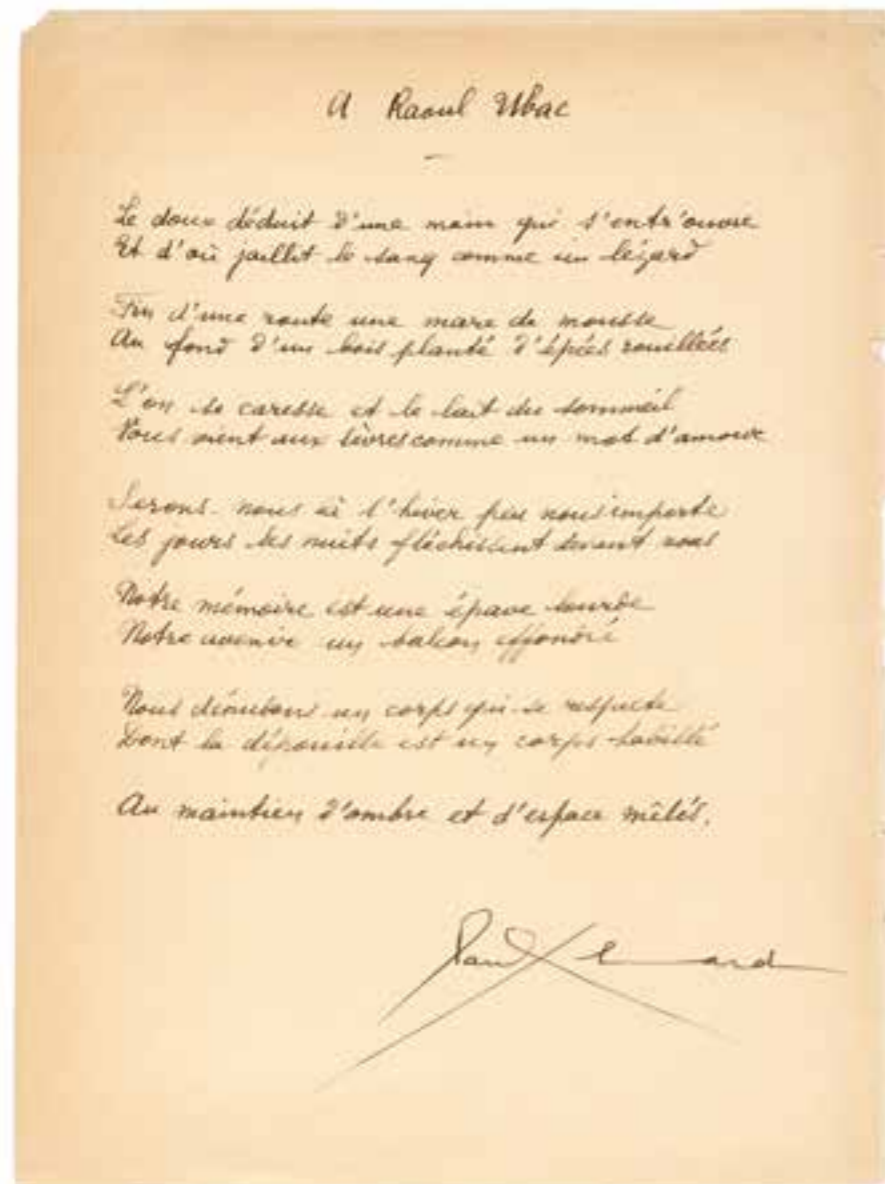 A Raoul Ubac
Le doux déduit d'une main qui s'entr'ouvre
Et d'où jaillit le sang comme un lézard
Fin d'une route une mare de mousse
Au fond d'un bois planté d'épées rouillées
L'on se caresse et le lait du sommeil
Vous vient aux lèvres comme un mot d'amour
Serons-nous à l'hiver peu nous importe
Les jours les nuits fléchissent devant nous
Notre mémoire est une épave lourde
Notre avenir un balcon effondré
Nous un corps qui se respecte
Dont la dépouille est un corps habillé
Au maintien d'ombre et d'espace mêlés.
Paul Eluard